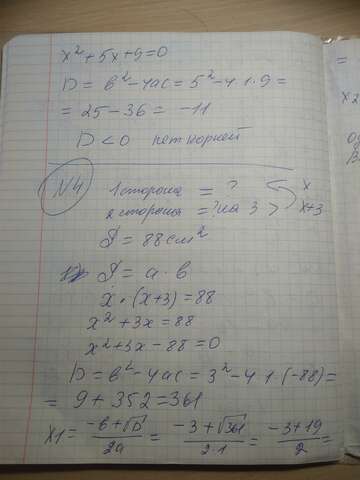 x² + 5x + 9 = 0
D = b² - 4ac = 5² - 4·1·9 =
= 25 - 36 = -11
D < 0 нет корней
N4
1 сторона = ? x
2 сторона = ? на 3 > x+3
S = 88 см²
S = a · b
x · (x+3) = 88
x² + 3x = 88
x² + 3x - 88 = 0
D = b² - 4ac = 3² - 4·1·(-88) =
= 9 + 352 = 361
x1 = -b+√D / 2a = -3+√361 / 2·1 = -3+19 / 2 =